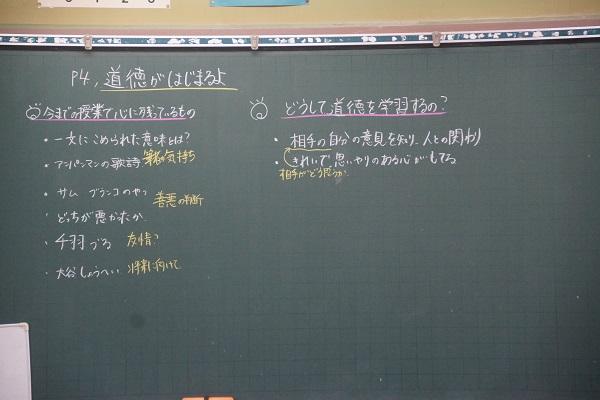 P4, 道徳がはじまるよ
今までの授業で心に残っているもの
・一文にこめられた意味とは?
・アンパンマンの歌詩 筆者の気持ち
・サム ブランコのやつ
・どっちが悪かったか 善悪の判断
・千羽づる 友情?
・大谷しょうへい 将来に向けて
どうして道徳を学習するの?
・相手の自分の意見を知り、人との関わり
・きれいで思いやりのある心がもてる
相手がどう思うか